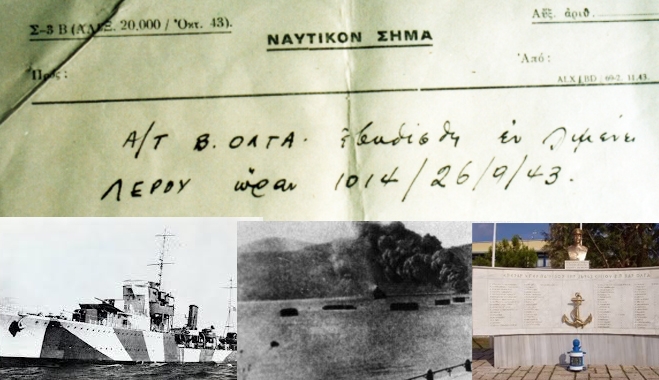 Σ-3 Β (ΑΔΕΞ. 20,000 / Ὀκτ. 43).
Αὔξ. ἀριθ.
ΝΑΥΤΙΚΟΝ ΣΗΜΑ
Πρός:
Ἀπό:
ALX (BD) 69-2. 11.43.
Α/Τ Β. ΟΛΓΑ. ἐβυθίσθη ἐν λιμένι
ΛΕΡΟΥ ὥραν 1014/26/9/43.